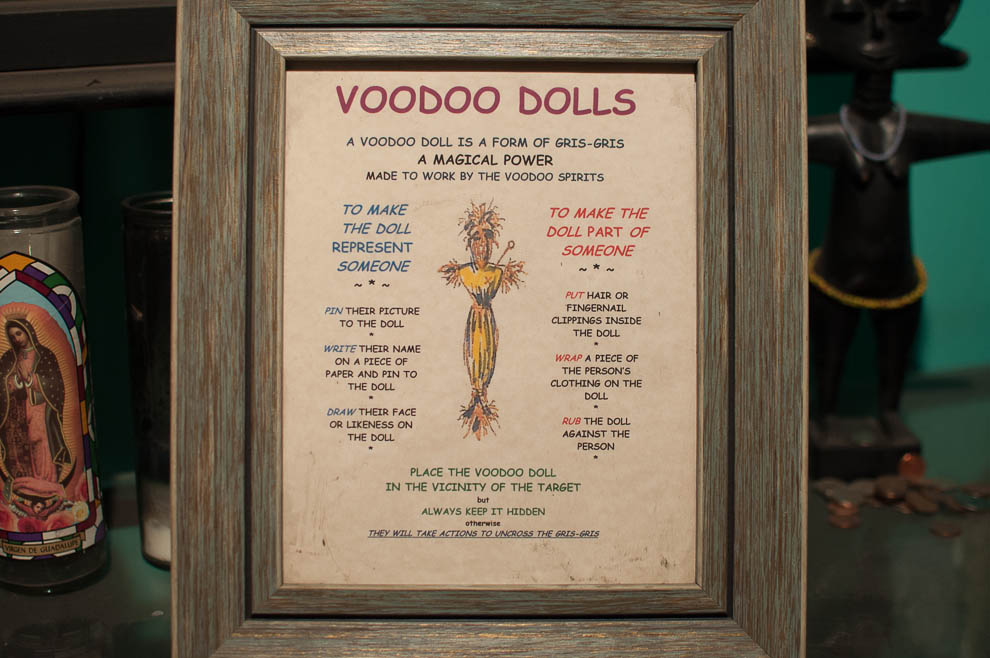 VOODOO DOLLS
A VOODOO DOLL IS A FORM OF GRIS-GRIS
A MAGICAL POWER
MADE TO WORK BY THE VOODOO SPIRITS
TO MAKE
THE DOLL
REPRESENT
SOMEONE
~ * ~
PIN THEIR PICTURE
TO THE DOLL
*
WRITE THEIR NAME
ON A PIECE OF
PAPER AND PIN TO
THE DOLL
*
DRAW THEIR FACE
OR LIKENESS ON
THE DOLL
*
TO MAKE THE
DOLL PART OF
SOMEONE
~ * ~
PUT HAIR OR
FINGERNAIL
CLIPPINGS INSIDE
THE DOLL
*
WRAP A PIECE OF
THE PERSON'S
CLOTHING ON THE
DOLL
*
RUB THE DOLL
AGAINST THE
PERSON
*
PLACE THE VOODOO DOLL
IN THE VICINITY OF THE TARGET
but
ALWAYS KEEP IT HIDDEN
otherwise
THEY WILL TAKE ACTIONS TO UNCROSS THE GRIS-GRIS
VIRGEN DE GUADALUPE